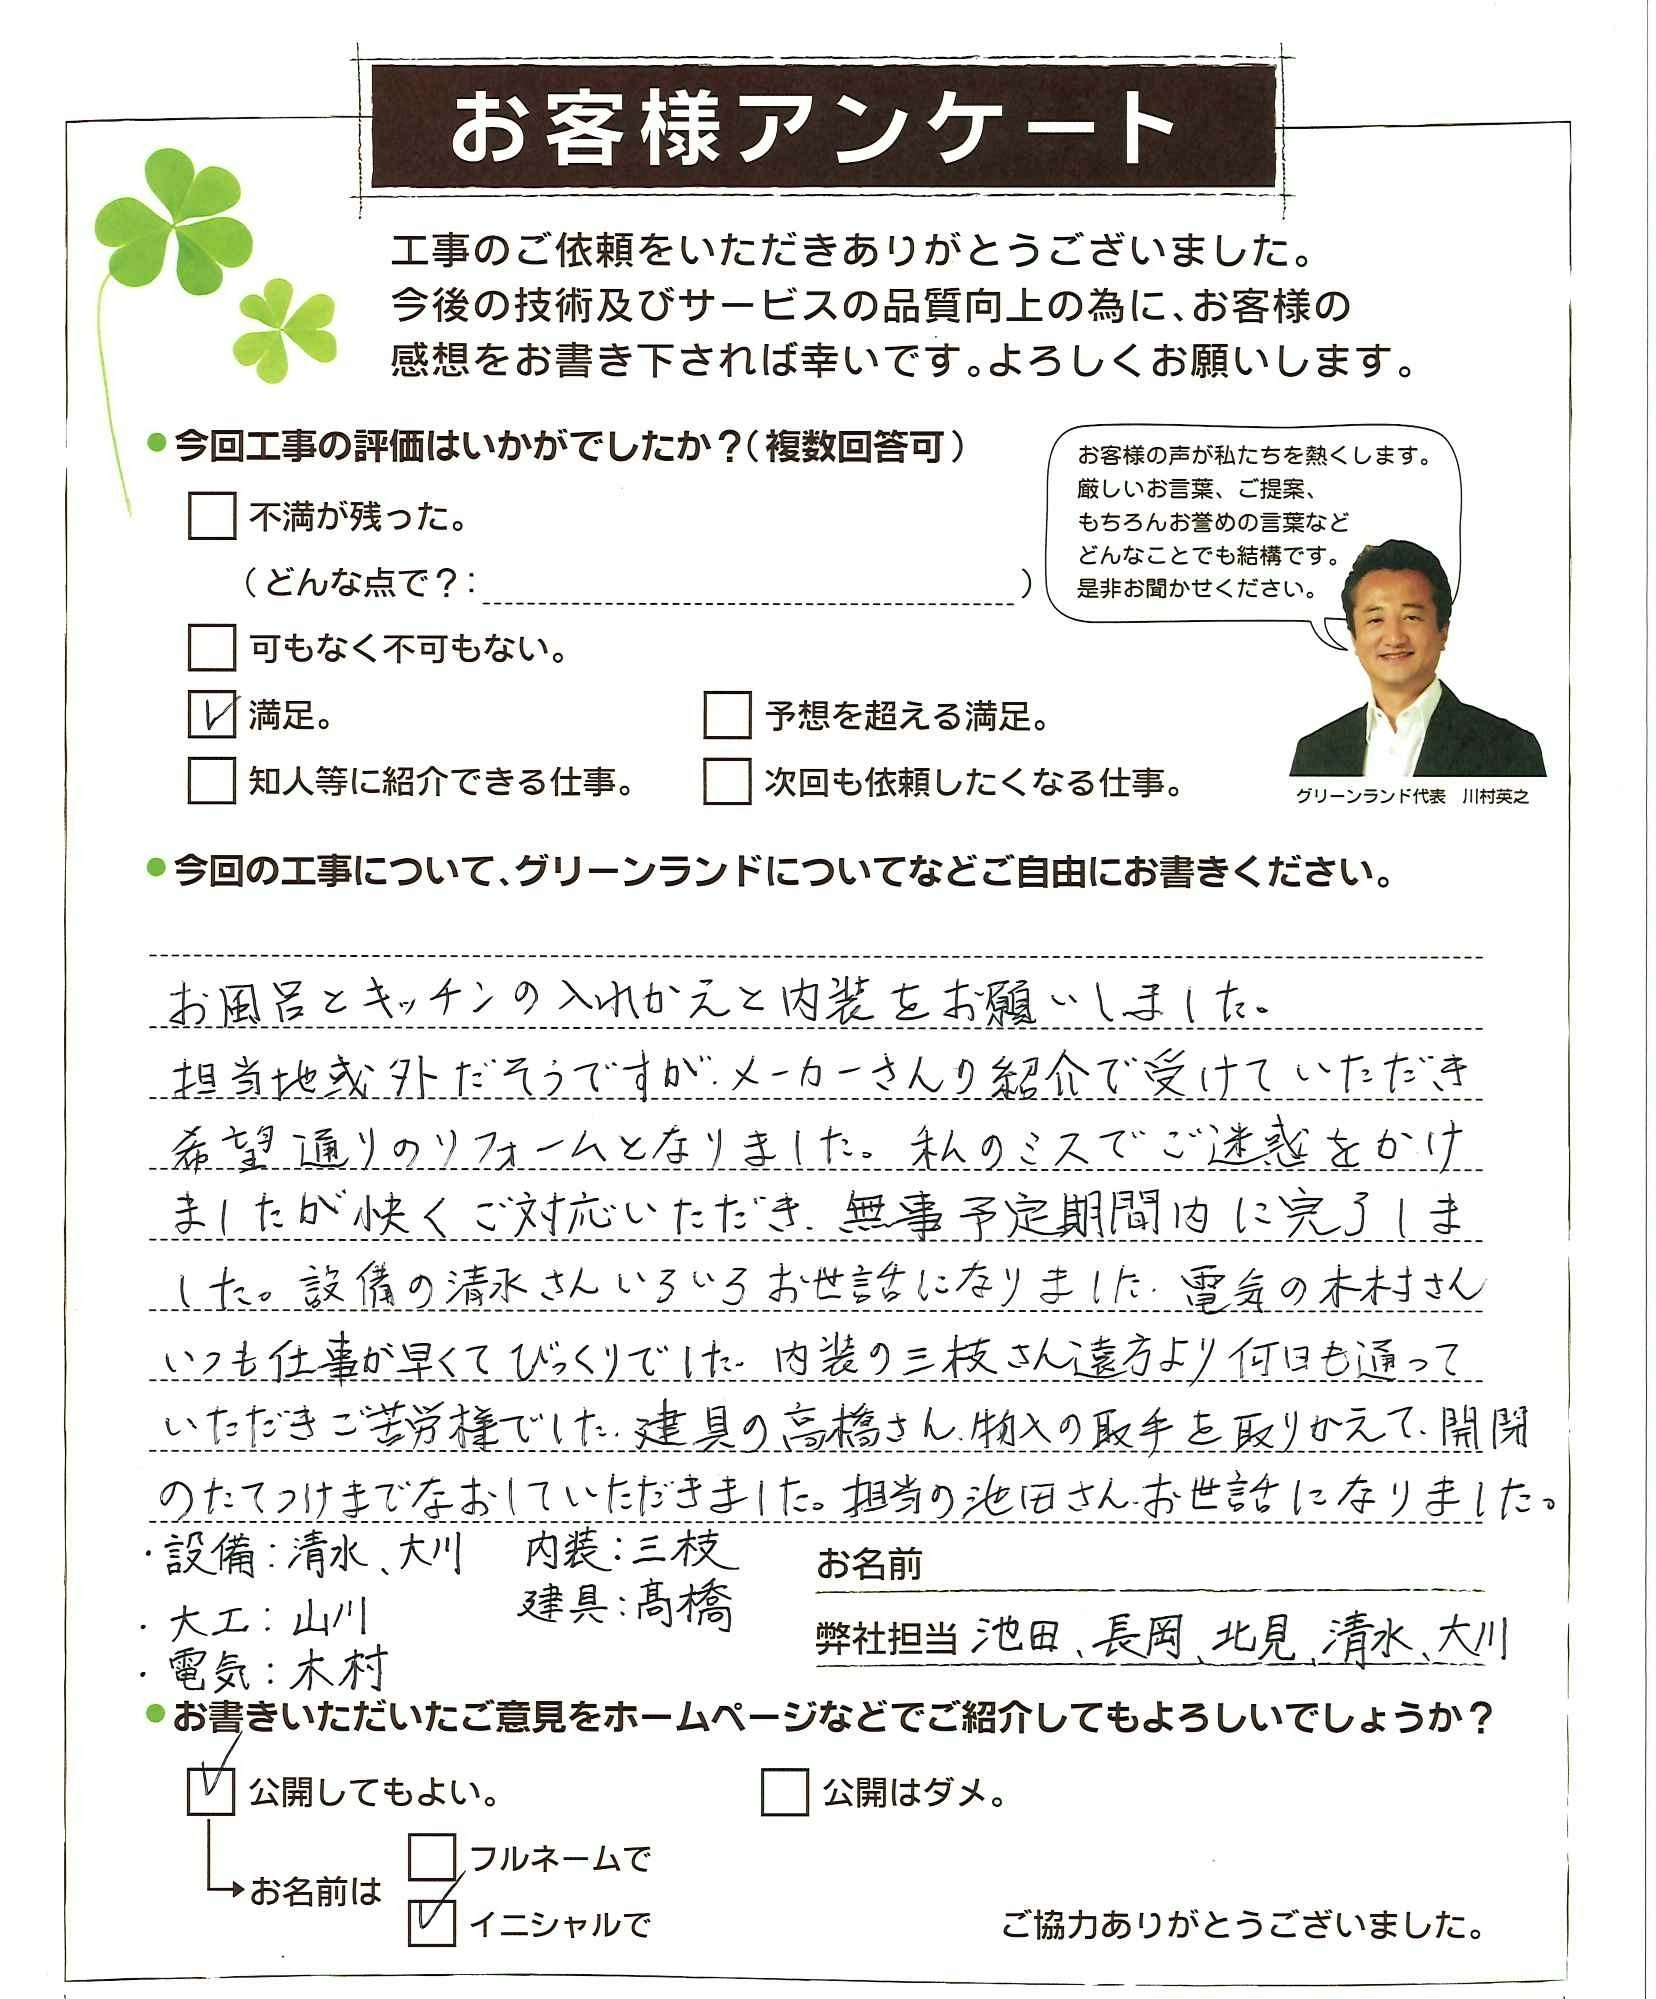 お客様アンケート
工事のご依頼をいただきありがとうございました。
今後の技術及びサービスの品質向上の為に、お客様の
感想をお書き下されば幸いです。よろしくお願いします。
●今回工事の評価はいかがでしたか？（複数回答可）
お客様の声が私たちを熱くします。
厳しいお言葉、ご提案、
もちろんお誉めの言葉など
どんなことでも結構です。
是非お聞かせください。
不満が残った。
（どんな点で？：　）
可もなく不可もない。
満足。　予想を超える満足。
知人等に紹介できる仕事。　次回も依頼したくなる仕事。
グリーンランド代表　川村英之
●今回の工事について、グリーンランドについてなどご自由にお書きください。
お風呂とキッチンの入れかえと内装をお願いしました。
担当地域外だそうですが、メーカーさんの紹介で受けていただき
希望通りのリフォームとなりました。私のミスでご迷惑をかけ
ましたが快くご対応いただき、無事予定期間内に完了しま
した。設備の清水さんいろいろお世話になりました、電気の木村さん
いつも仕事が早くてびっくりでした、内装の三枝さん遠方より何日も通って
いただきご苦労様でした、建具の高橋さん、物入の取手を取りかえて、開閉
のたてつけまでなおしていただきました。担当の池田さん、お世話になりました。
・設備：清水、大川　内装：三枝
建具：髙橋
・大工：山川
・電気：木村
お名前
弊社担当 池田、長岡、北見、清水、大川
●お書きいただいたご意見をホームページなどでご紹介してもよろしいでしょうか？
公開してもよい。　公開はダメ。
フルネームで
お名前は
イニシャルで
ご協力ありがとうございました。